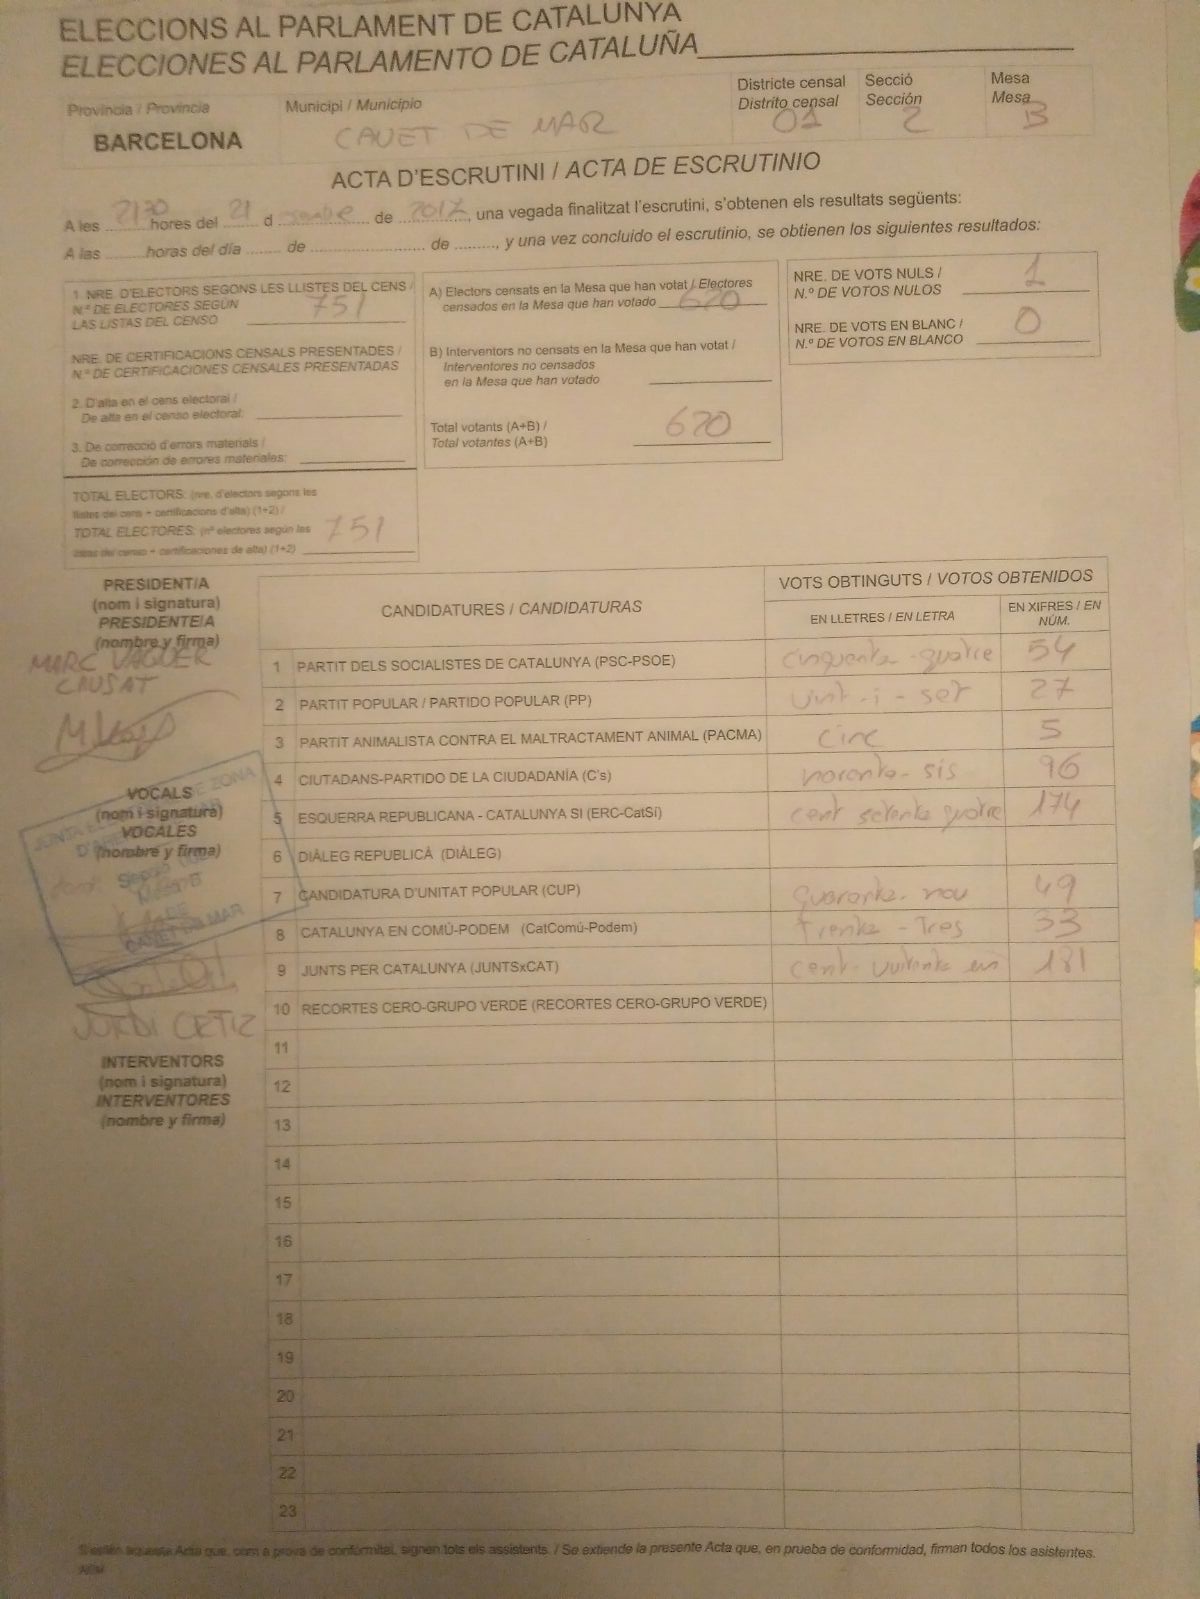 ELECCIONS AL PARLAMENT DE CATALUNYA
ELECCIONES AL PARLAMENTO DE CATALUÑA
Província / Provincia
BARCELONA
Municipi / Municipio
CANET DE MAR
Districte censal
Distrito censal
01
Secció
Sección
2
Mesa
Mesa
B
ACTA D'ESCRUTINI / ACTA DE ESCRUTINIO
A les 2130 hores del 21 d de 2017, una vegada finalitzat l'escrutini, s'obtenen els resultats següents:
A las ........horas del día ........ de .......................... de .........., y una vez concluido el escrutinio, se obtienen los siguientes resultados:
1. NRE. D'ELECTORS SEGONS LES LLISTES DEL CENS /
N.º DE ELECTORES SEGÚN
LAS LISTAS DEL CENSO 751
NRE. DE CERTIFICACIONS CENSALS PRESENTADES /
N.º DE CERTIFICACIONES CENSALES PRESENTADAS
2. D'alta en el cens electoral /
De alta en el censo electoral:
3. De correcció d'errors materials /
De corrección de errores materiales:
TOTAL ELECTORS: (nre. d'electors segons les
llistes del cens + certificacions d'alta) (1+2) /
TOTAL ELECTORES: (nº electores según las
listas del censo + certificaciones de alta) (1+2) 751
A) Electors censats en la Mesa que han votat / Electores
censados en la Mesa que han votado 620
B) Interventors no censats en la Mesa que han votat /
Interventores no censados
en la Mesa que han votado
Total votants (A+B) /
Total votantes (A+B) 620
NRE. DE VOTS NULS /
N.º DE VOTOS NULOS 1
NRE. DE VOTS EN BLANC /
N.º DE VOTOS EN BLANCO 0
PRESIDENT/A
(nom i signatura)
PRESIDENTE/A
(nombre y firma)
MARC VAQUER
CAUSAT
VOCALS
(nom i signatura)
VOCALES
(nombre y firma)
JORDI
INTERVENTORS
(nom i signatura)
INTERVENTORES
(nombre y firma)
CANDIDATURES / CANDIDATURAS
VOTS OBTINGUTS / VOTOS OBTENIDOS
EN LLETRES / EN LETRA
EN XIFRES / EN
NÚM.
1 PARTIT DELS SOCIALISTES DE CATALUNYA (PSC-PSOE) cinquanta-quatre 54
2 PARTIT POPULAR / PARTIDO POPULAR (PP) vint-i-set 27
3 PARTIT ANIMALISTA CONTRA EL MALTRACTAMENT ANIMAL (PACMA) cinc 5
4 CIUTADANS-PARTIDO DE LA CIUDADANÍA (C's) noranta-sis 96
5 ESQUERRA REPUBLICANA - CATALUNYA SI (ERC-CatSí) cent setanta quatre 174
6 DIÀLEG REPUBLICÀ (DIÀLEG)
7 CANDIDATURA D'UNITAT POPULAR (CUP) quaranta-nou 49
8 CATALUNYA EN COMÚ-PODEM (CatComú-Podem) trenta-tres 33
9 JUNTS PER CATALUNYA (JUNTSxCAT) cent-vuitanta un 181
10 RECORTES CERO-GRUPO VERDE (RECORTES CERO-GRUPO VERDE)
11
12
13
14
15
16
17
18
19
20
21
22
23
S'estén aquesta Acta que, com a prova de conformitat, signen tots els assistents. / Se extiende la presente Acta que, en prueba de conformidad, firman todos los asistentes.